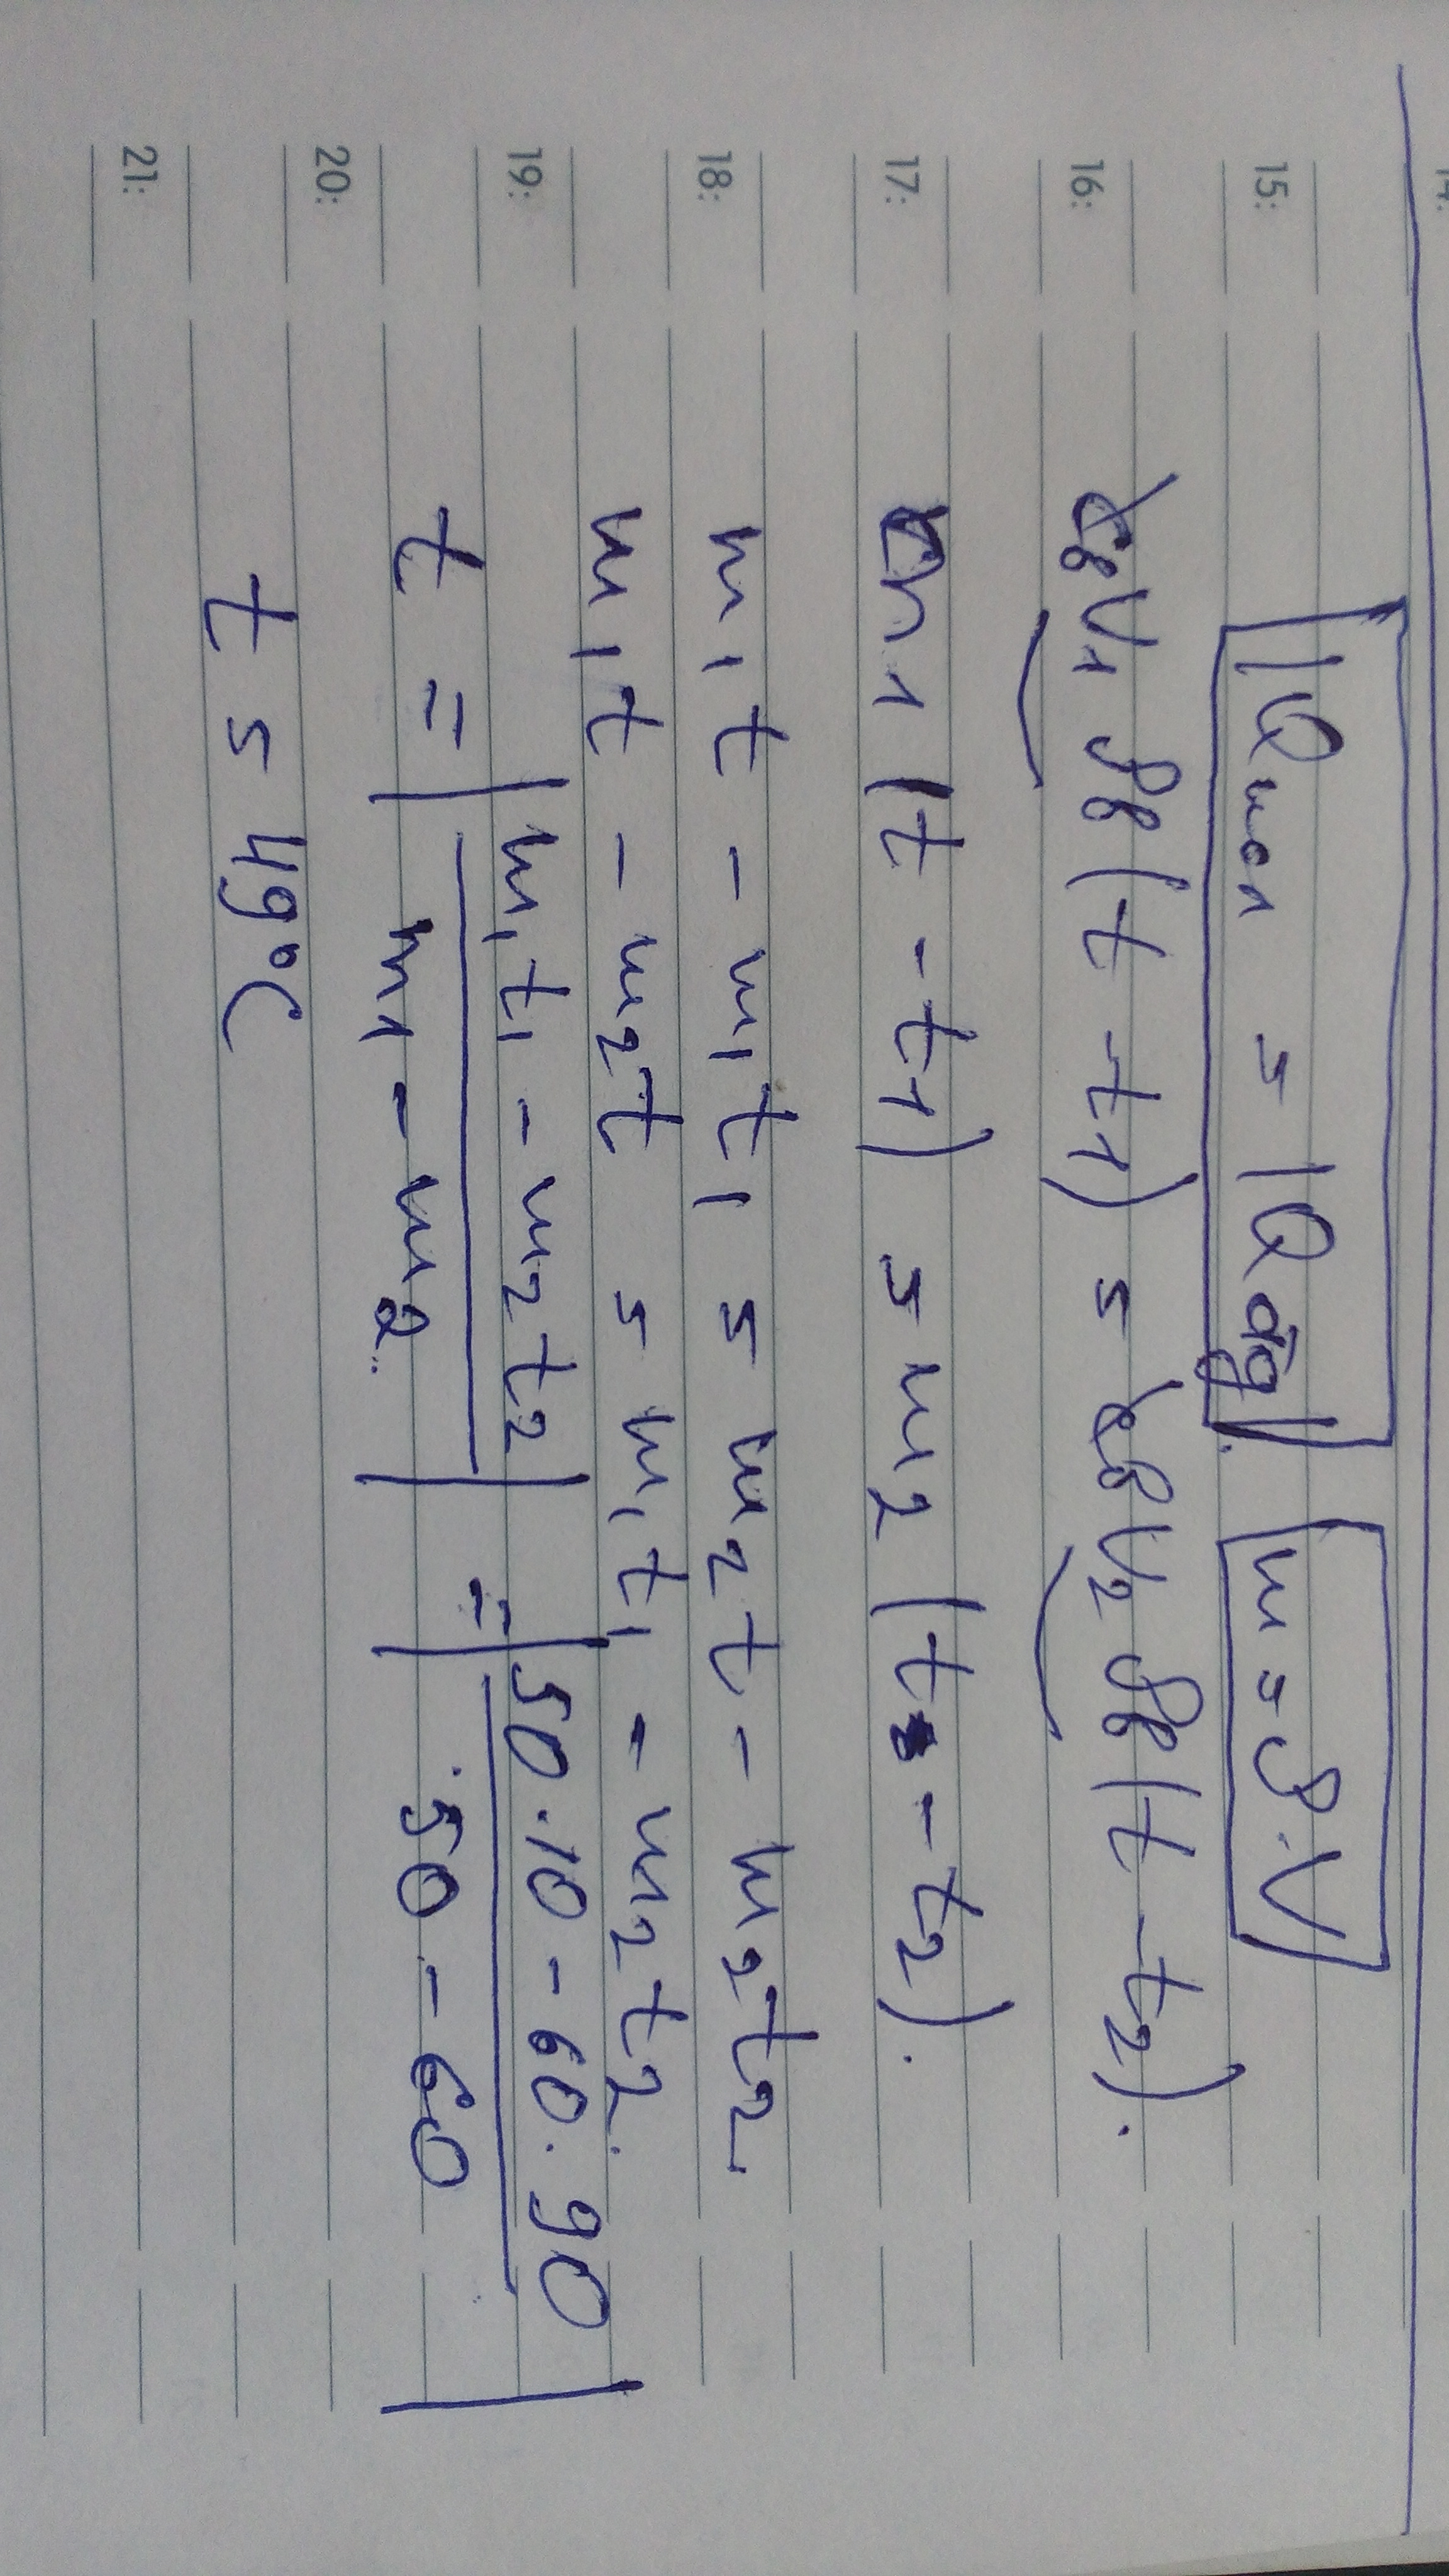 14:
15: |Q пол = |Q отд|. m = ρ·V
16: cв V1 ρв (t - t1) = cв V2 ρв (t - t2).
17: m1 (t - t1) = m2 (t - t2).
18: m1t - m1t1 = m2t - m2t2.
m1t - m2t = m1t1 - m2t2.
19: t = |m1t1 - m2t2 / m1 - m2| = |50·10 - 60·90 / 50 - 60|
20:
t = 49°C
21: